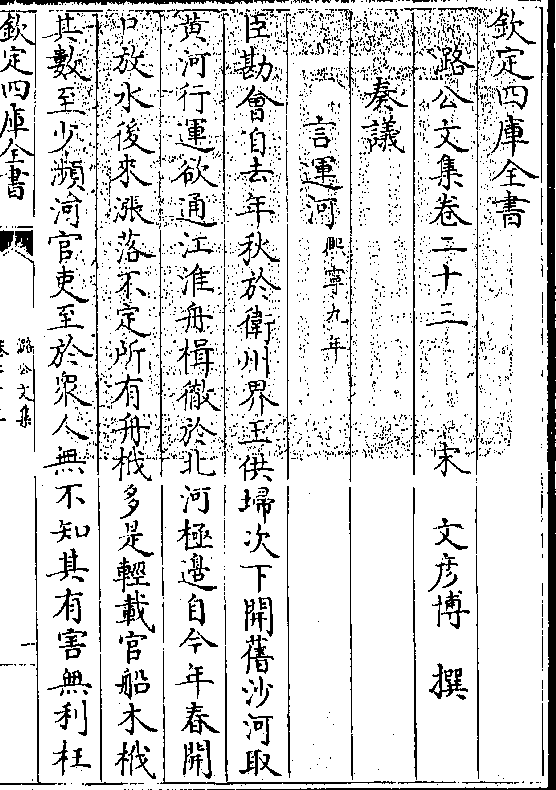 欽定四庫全書
潞公文集卷二十三　宋　文彥博　撰
奏議
言運河熙寧九年
臣勘會自去年秋於衛州界王供埽次下開舊沙河取
黄河行運欲通江淮舟楫徹於北河極邊自今年春開
口放水後來漲落不定所有舟栰多是輕載官船木栰
其數至少瀕河官吏至於衆人無不知其有害無利枉
欽定四庫全書
潞公文集
一